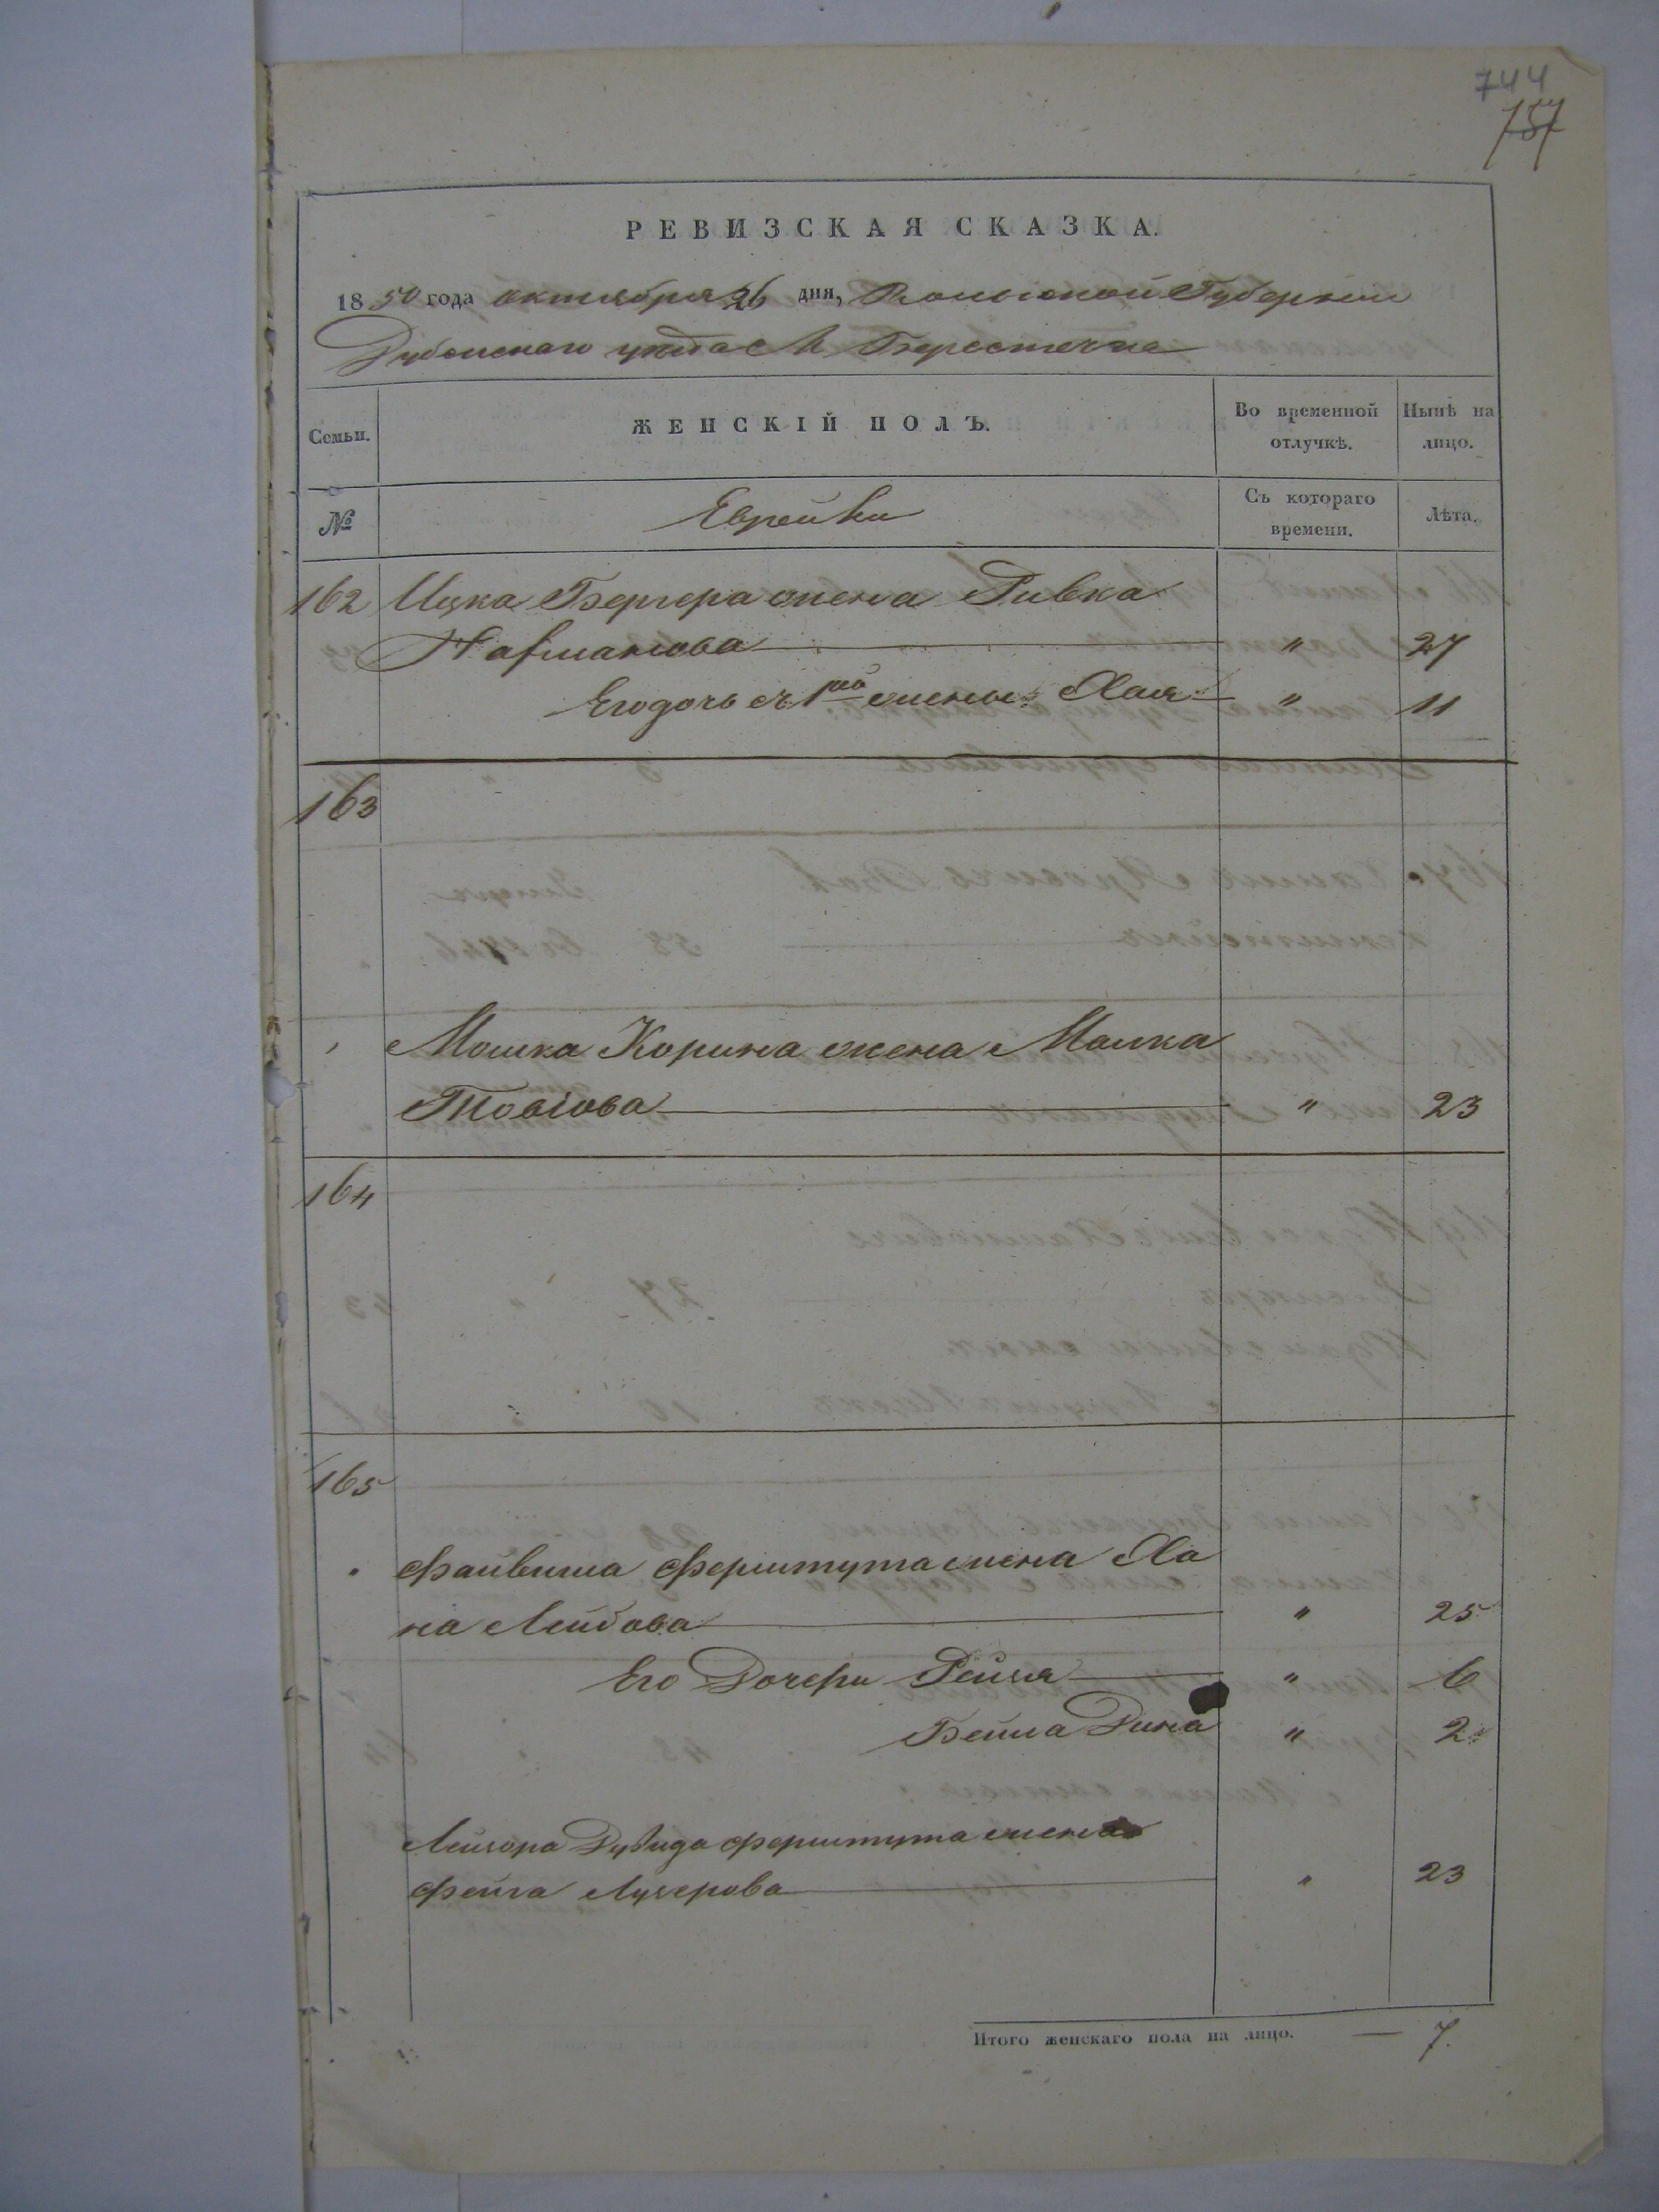 744
757
РЕВИЗСКАЯ СКАЗКА.
1850 года октября 26 дня, Волынской Губернии
Дубенскаго уезда М Берестечка
Семьи.
ЖЕНСКІЙ ПОЛЪ.
Во временной отлучкѣ.
Нынѣ на лицо.
№
Еврейки
Съ котораго времени.
Лѣта.
162 Ицка Бергера жена Ривка
Нафманова " 27
Его дочь съ 1ой жены Хая " 11
163
Мошка Корина жена Малка
Товіова " 23
164
165
Файвиша Ферштута жена Ха
на Лейбова " 25
Его Дочери Рейзя " 6
Бейла Дина " 2
Лейзора Дувида Ферштута жена
Фейга Лузерова " 23
Итого женскаго пола на лицо. — 7.